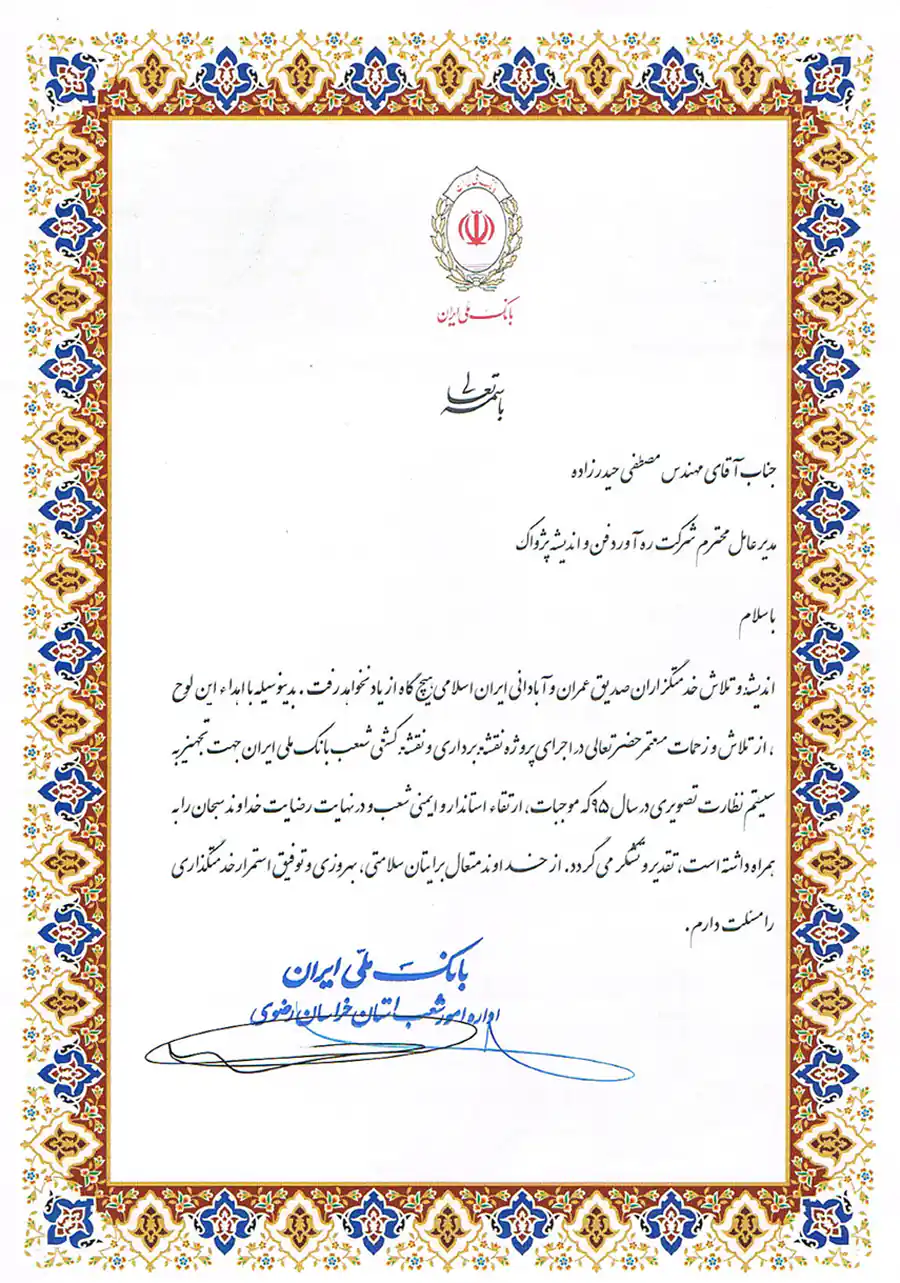 بانک ملی ایران
باسمه تعالی
جناب آقای مهندس مصطفی حیدرزاده
مدیرعامل محترم شرکت ره آورد فن و اندیشه پژواک
باسلام
اندیشه و تلاش خدمتگزاران صدیق عمران و آبادانی ایران اسلامی هیچ گاه از یاد نخواهد رفت. بدینوسیله با اهداء این لوح
، از تلاش و زحمات مستمر حضرتعالی در اجرای پروژه نقشه برداری و نقشه کشی شعب بانک ملی ایران جهت تجهیز به
سیستم نظارت تصویری در سال ۹۵ که موجبات، ارتقاء استاندارد و ایمنی شعب و در نهایت رضایت خداوند سبحان را به
همراه داشته است، تقدیر و تشکر می گردد. از خداوند متعال برایتان سلامتی، بهروزی و توفیق استمرار خدمتگذاری
را مسئلت دارم.
بانک ملّی ایران
اداره امور شعب استان خراسان رضوی